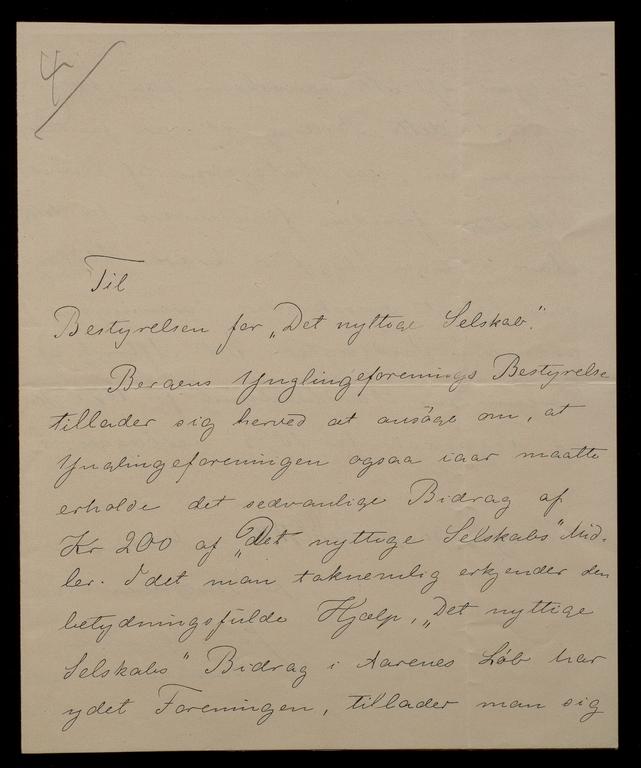 4/
Til
Bestyrelsen for „Det nyttige Selskab“.
Bergens Ynglingeforenings Bestyrelse
tillader sig herved at ansöge om, at
Ynglingeforeningen ogsaa iaar maatte
erholde det sedvanlige Bidrag af
Kr 200 af „Det nyttige Selskabs“ Mid-
ler. Idet man taknemlig erkjender den
betydningsfulde Hjælp, „Det nyttige
Selskabs“ Bidrag i Aarenes Løb har
ydet Foreningen, tillader man sig